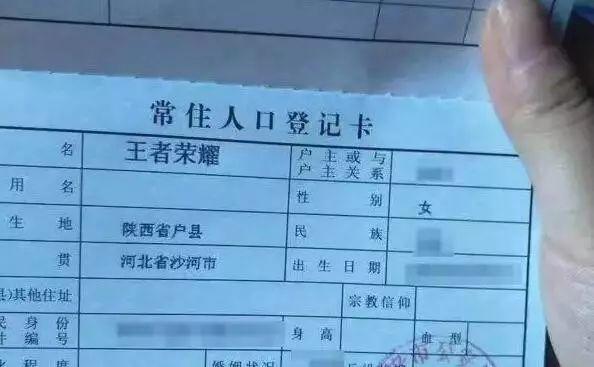 常住人口登记卡
名 王者荣耀 户主或与
户主关系
用名 性别 女
生地 陕西省户县 民族
贯 河北省沙河市 出生日期
县)其他住址 宗教信仰
民身份
件编号 身高 血型
化程度 婚姻状况